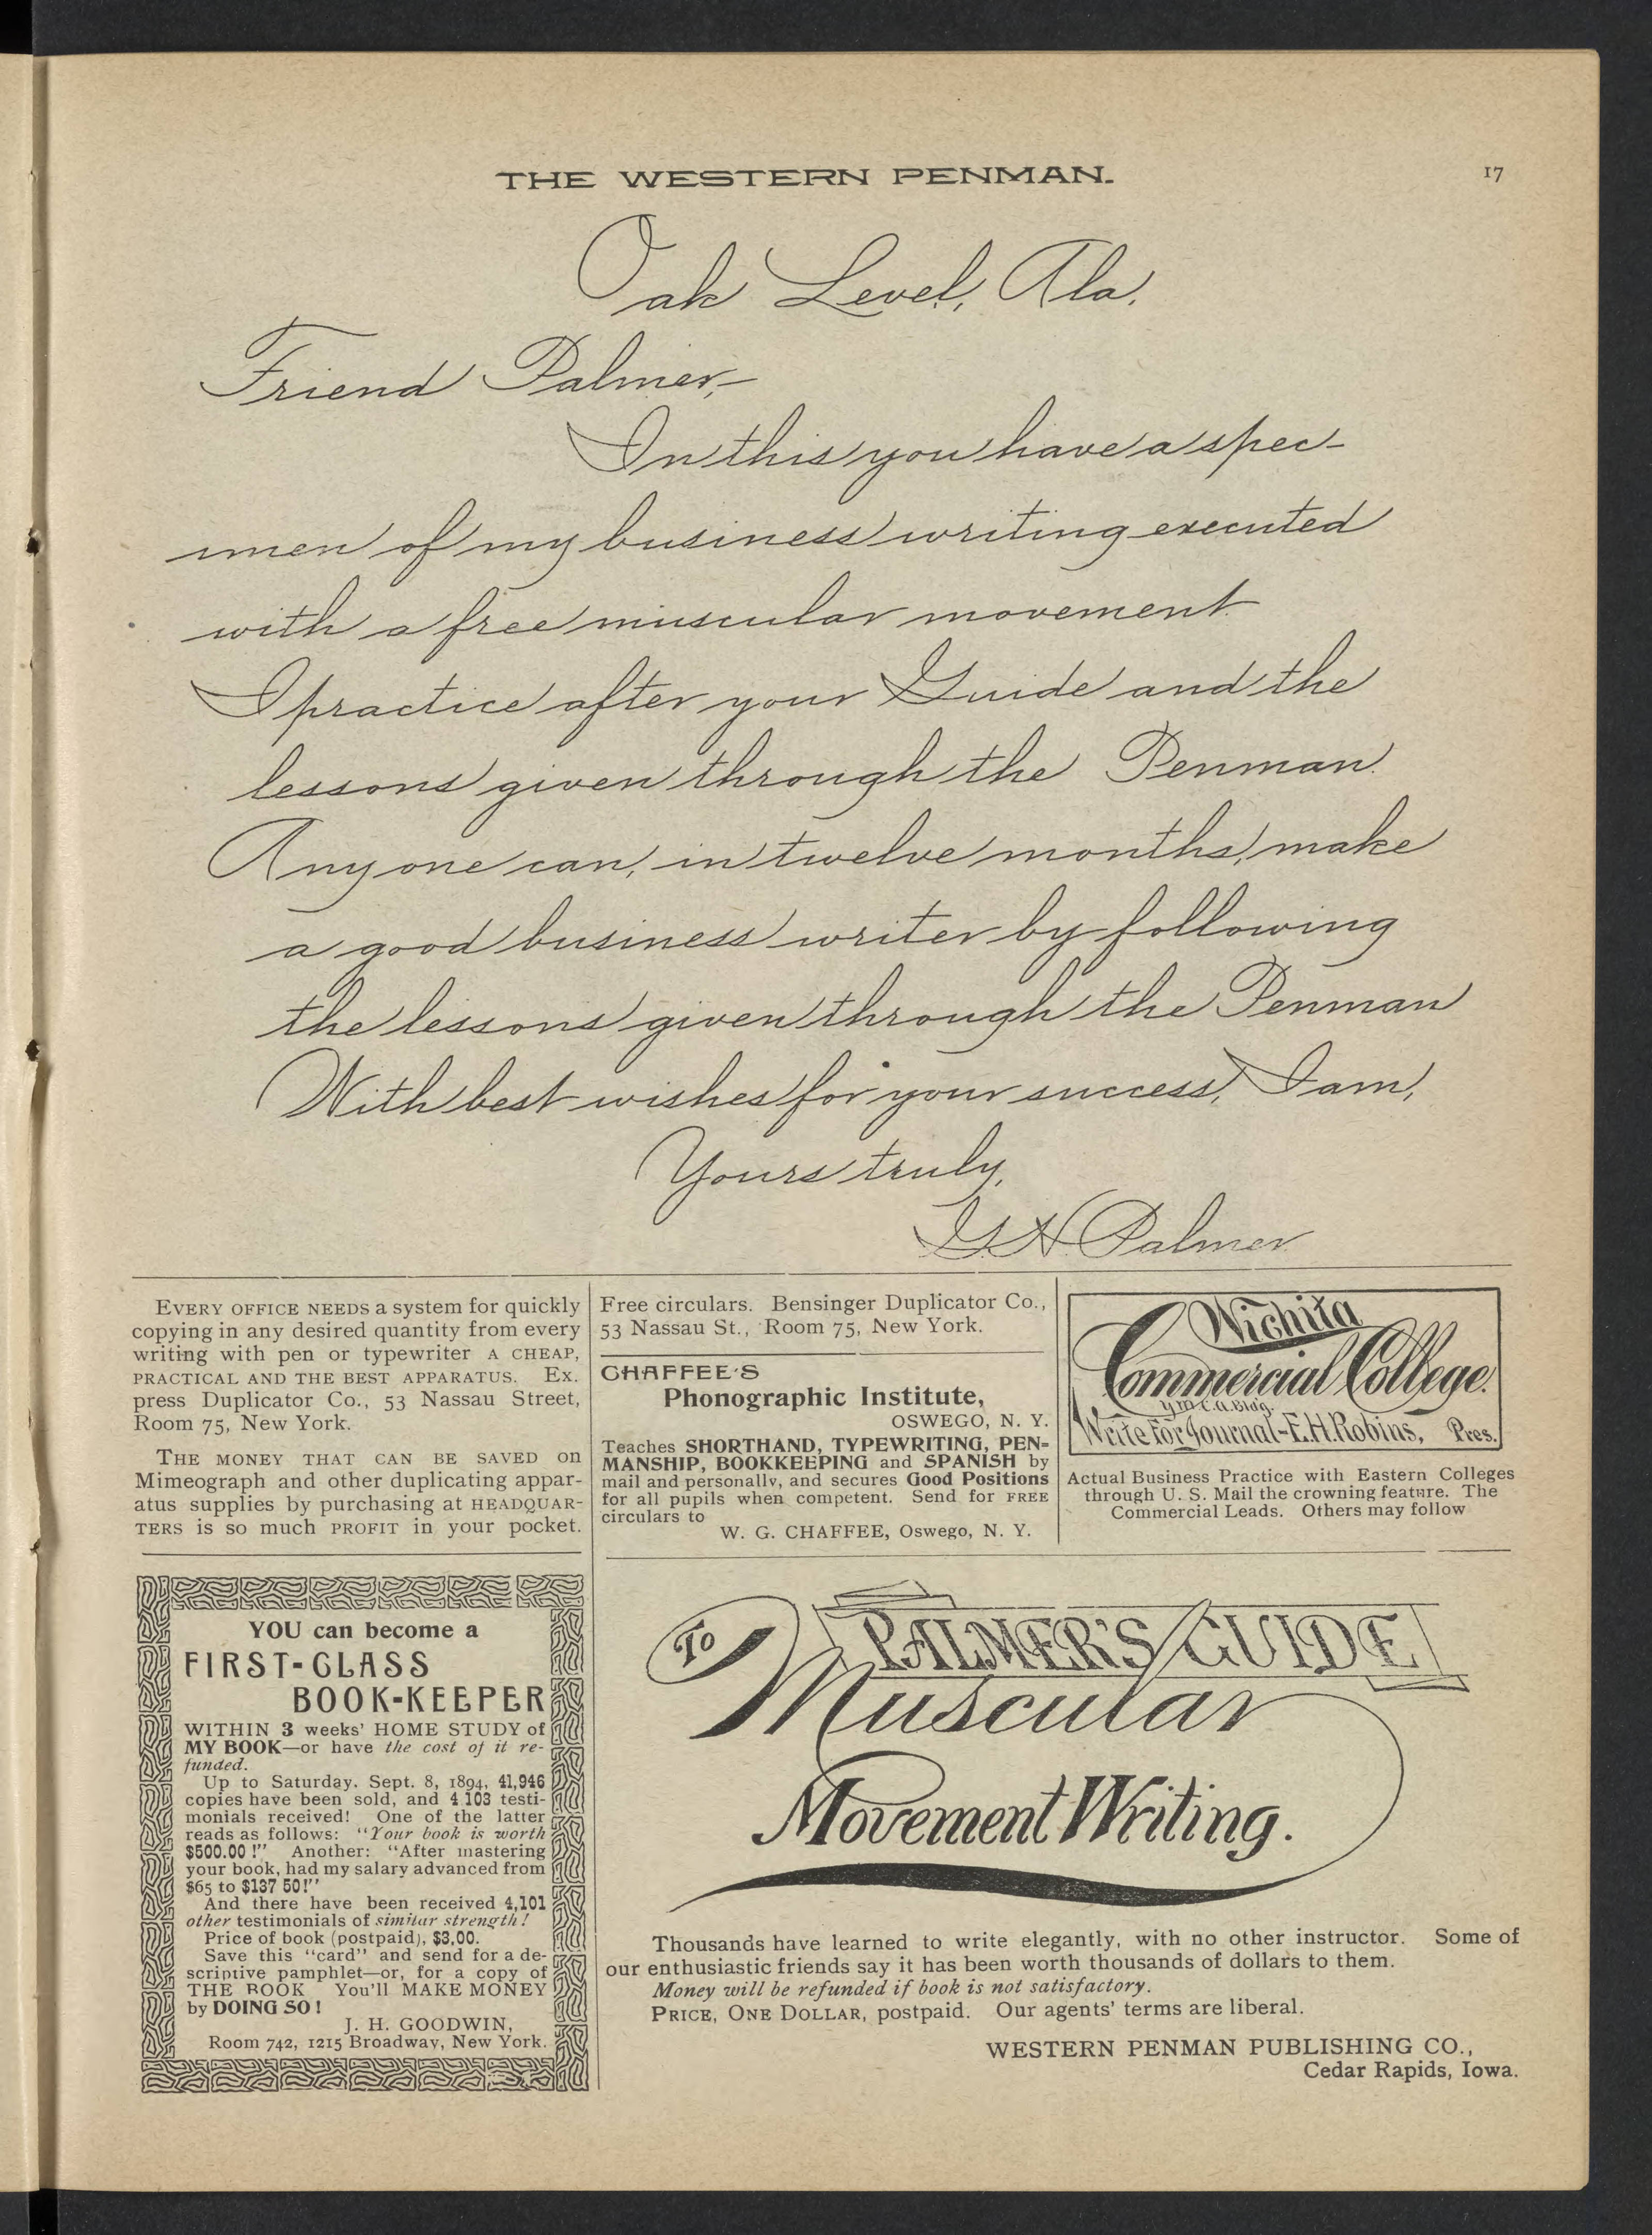 THE WESTERN PENMAN.
17
Oak Level, Ala.
Friend Palmer,
In this you have a spec-
imen of my business writing executed
with a free muscular movement.
I practice after your Guide and the
lessons given through the Penman.
Any one can, in twelve months, make
a good business writer by following
the lessons given through the Penman
With best wishes for your success, I am,
Yours truly,
G. H. Palmer
EVERY OFFICE NEEDS a system for quickly
copying in any desired quantity from every
writing with pen or typewriter A CHEAP,
PRACTICAL AND THE BEST APPARATUS. Ex.
press Duplicator Co., 53 Nassau Street,
Room 75, New York.
THE MONEY THAT CAN BE SAVED on
Mimeograph and other duplicating appar-
atus supplies by purchasing at HEADQUAR-
TERS is so much PROFIT in your pocket.
Free circulars. Bensinger Duplicator Co.,
53 Nassau St., Room 75, New York.
CHAFFEE'S
Phonographic Institute,
OSWEGO, N. Y.
Teaches SHORTHAND, TYPEWRITING, PEN-
MANSHIP, BOOKKEEPING and SPANISH by
mail and personally, and secures Good Positions
for all pupils when competent. Send for FREE
circulars to
W. G. CHAFFEE, Oswego, N. Y.
Wichita
Commercial College.
Y.M.C.A. Bldg.
Write for Journal-E.H.Robins, Pres.
Actual Business Practice with Eastern Colleges
through U. S. Mail the crowning feature. The
Commercial Leads. Others may follow
YOU can become a
FIRST-CLASS
BOOK-KEEPER
WITHIN 3 weeks' HOME STUDY of
MY BOOK—or have the cost of it re-
funded.
Up to Saturday. Sept. 8, 1894, 41,946
copies have been sold, and 4 103 testi-
monials received! One of the latter
reads as follows: "Your book is worth
$500.00 !" Another: "After mastering
your book, had my salary advanced from
$65 to $137 50!"
And there have been received 4,101
other testimonials of similar strength!
Price of book (postpaid), $3,00.
Save this "card" and send for a de-
scriptive pamphlet—or, for a copy of
THE BOOK You'll MAKE MONEY
by DOING SO!
J. H. GOODWIN,
Room 742, 1215 Broadway, New York.
PALMER'S GUIDE
To Muscular
Movement Writing.
Thousands have learned to write elegantly, with no other instructor. Some of
our enthusiastic friends say it has been worth thousands of dollars to them.
Money will be refunded if book is not satisfactory.
PRICE, ONE DOLLAR, postpaid. Our agents' terms are liberal.
WESTERN PENMAN PUBLISHING CO.,
Cedar Rapids, Iowa.